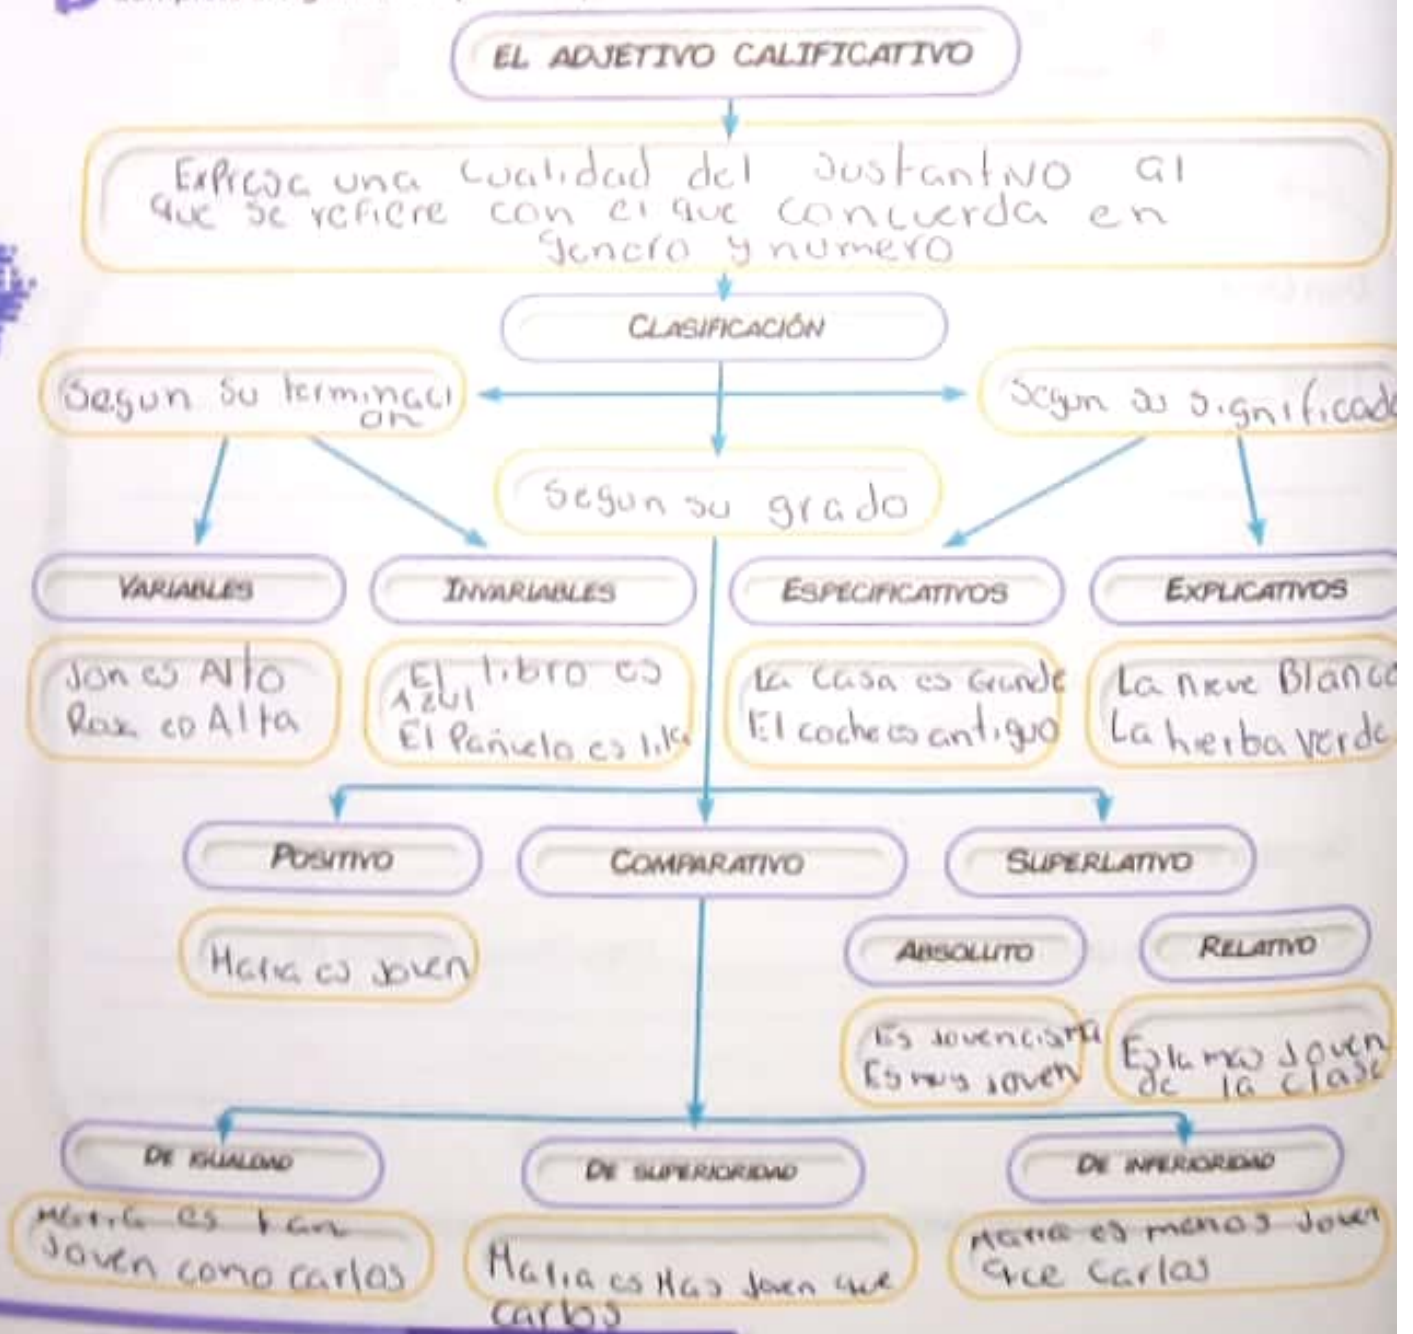 EL ADJETIVO CALIFICATIVO
Expresa una cualidad del sustantivo al
que se refiere con el que concuerda en
genero y numero
CLASIFICACIÓN
Segun su terminaci
on
Segun su significado
Segun su grado
VARIABLES
INVARIABLES
ESPECIFICATIVOS
EXPLICATIVOS
Jon es Alto
es Alta
El libro es
Azul
El Pañuelo es lila
La casa es Grande
El coche es antiguo
La nieve Blanca
La hierba verde
POSITIVO
COMPARATIVO
SUPERLATIVO
Maria es joven
ABSOLUTO
RELATIVO
Es jovencisma
Es muy joven
Es la mas joven
de la clase
DE IGUALDAD
DE SUPERIORIDAD
DE INFERIORIDAD
Maria es tan
joven como carlos
Maria es Mas joven que
carlos
Maria es menos joven
que carlos